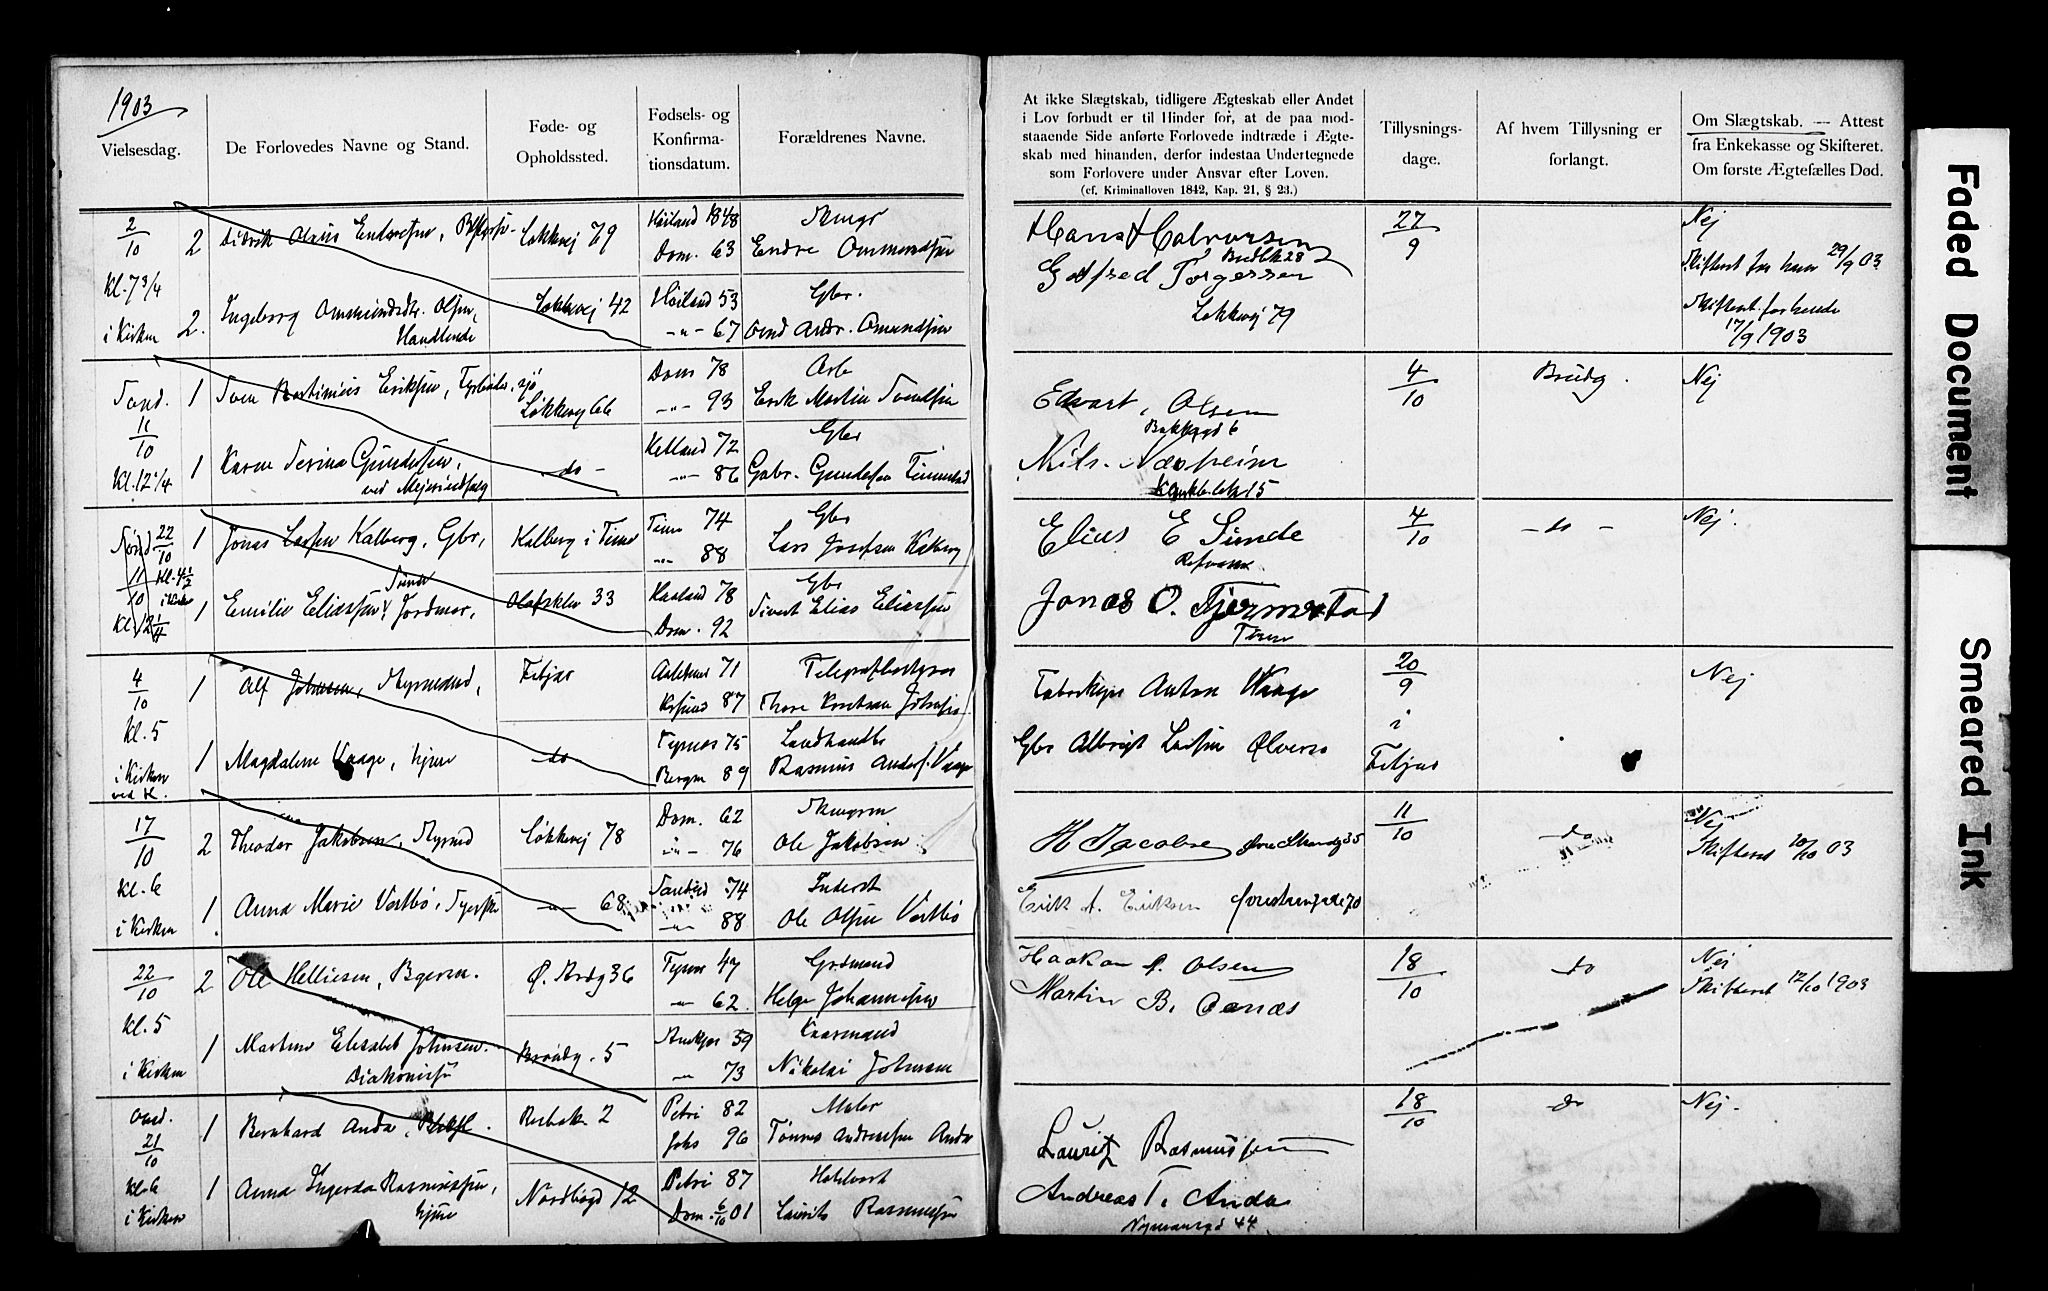 1903
Vielsesdag.
De Forlovedes Navne og Stand.
Føde- og
Opholdssted.
Fødsels- og
Konfirma-
tionsdatum.
Forældrenes Navne.
At ikke Slægtskab, tidligere Ægteskab eller Andet
i Lov forbudt er til Hinder for, at de paa mod-
staaende Side anførte Forlovede indtræde i Ægte-
skab med hinanden, derfor indestaa Undertegnede
som Forlovere under Ansvar efter Loven.
(cf. Kriminalloven 1842, Kap. 21, § 23.)
Tillysnings-
dage.
Af hvem Tillysning er
forlangt.
Om Slægtskab. — Attest
fra Enkekasse og Skifteret.
Om første Ægtefælles Død.
2/10
Kl. 7 3/4
i Kirken
2 Didrik Olaus Endresen,
Løkkevej 79
Høiland 1848
Dom. 63
Endre Ommundsen
2. Ingeborg Ommundsdtr. Olsen,
Handlende
Løkkevej 42
Høiland 53
-"- 67
Gbr.
Omund
Hans Halvorsen
28
Gotfred Torgersen
Løkkevej 79
27/9
Nej
Skifteret for ham 29/9 03
Skifteret for hende
17/9 1903
Sønd.
11/10
Kl. 12 1/4
1 Sven Bertinius Eriksen,
Løkkevej 66
Dom 78
-"- 93
Arb
Erik Martin Svendsen
1 Karen Serina Gundersen,
ved
do
Helland 72
-"- 86
Gbr
Gabr. Gundersen
Edvart Olsen
6
Nils Næsheim
15
4/10
Brudg.
Nej
Sønd 22/10
11/10 Kl. 4 1/2
i Kirken
Kl. 12 1/4
1 Jonas Larsen Kalberg, Gbr,
Kalberg i Time
Time 74
-"- 88
Gbr
Lars Josefsen Kalberg
1 Emilie Eliassen Sunde, Jordmor,
Olafsklev 33
Haaland 78
Dom. 92
Gbr
Sivert Elias Eliassen
Elias E Sunde
Jonas O. Fjermestad
Time
4/10
- do -
Nej.
4/10
kl. 5
i Kirken
1 Alf Johnsen, Styrmand,
Fitjar
Aalesund 71
Krsund 87
Telegrafbestyrer
Thore Knutsen Johnsen
1 Magdalene Vaage, hjme
do
Tysnes 75
Bergen 89
Landhandler
Rasmus Anders. Vaage
Anton Waage
Gbr Albrigt Larsen
20/9
i
Fitjar
Nej
17/10
kl. 6
i Kirken
2 Theodor Jakobsen, Styrmd
Løkkevej 78
Dom. 62
-"- 76
Ole Jakobsen
1. Anna Marie Vestbø,
-"- 68
74
-"- 88
Inderst
Ole Olsen Vestbø
H Jacobsen Øvre Strandg 35
Erik A. Eriksen 70
11/10
do
Nej
Skifteret 10/10 03
22/10
kl. 5
i Kirken
2 Ole Helliesen,
Ø. 36
47
-"- 62.
Grdmand
Helge Johannesen
1 Martine Elisabet Johnsen.
Diakonisse
5
59
-"- 73
Nikolai Johnsen
Haakon Olsen
Martin B.
18/10
do
Nej
Skifteret 12/10 1903
Onsd.
21/10
kl. 6
i Kirken
1 Bernhard Anda,
2
Petri 82
Johs 96
Maler
Tønnes Andreassen Anda
1 Anna Ingerda Rasmussen,
hjme
12
Petri 87
Dom. 6/10 01
Laurits Rasmussen
Lauritz Rasmussen
Andreas T. Anda
44
18/10
do
Nej.
Faded Document
Smeared Ink